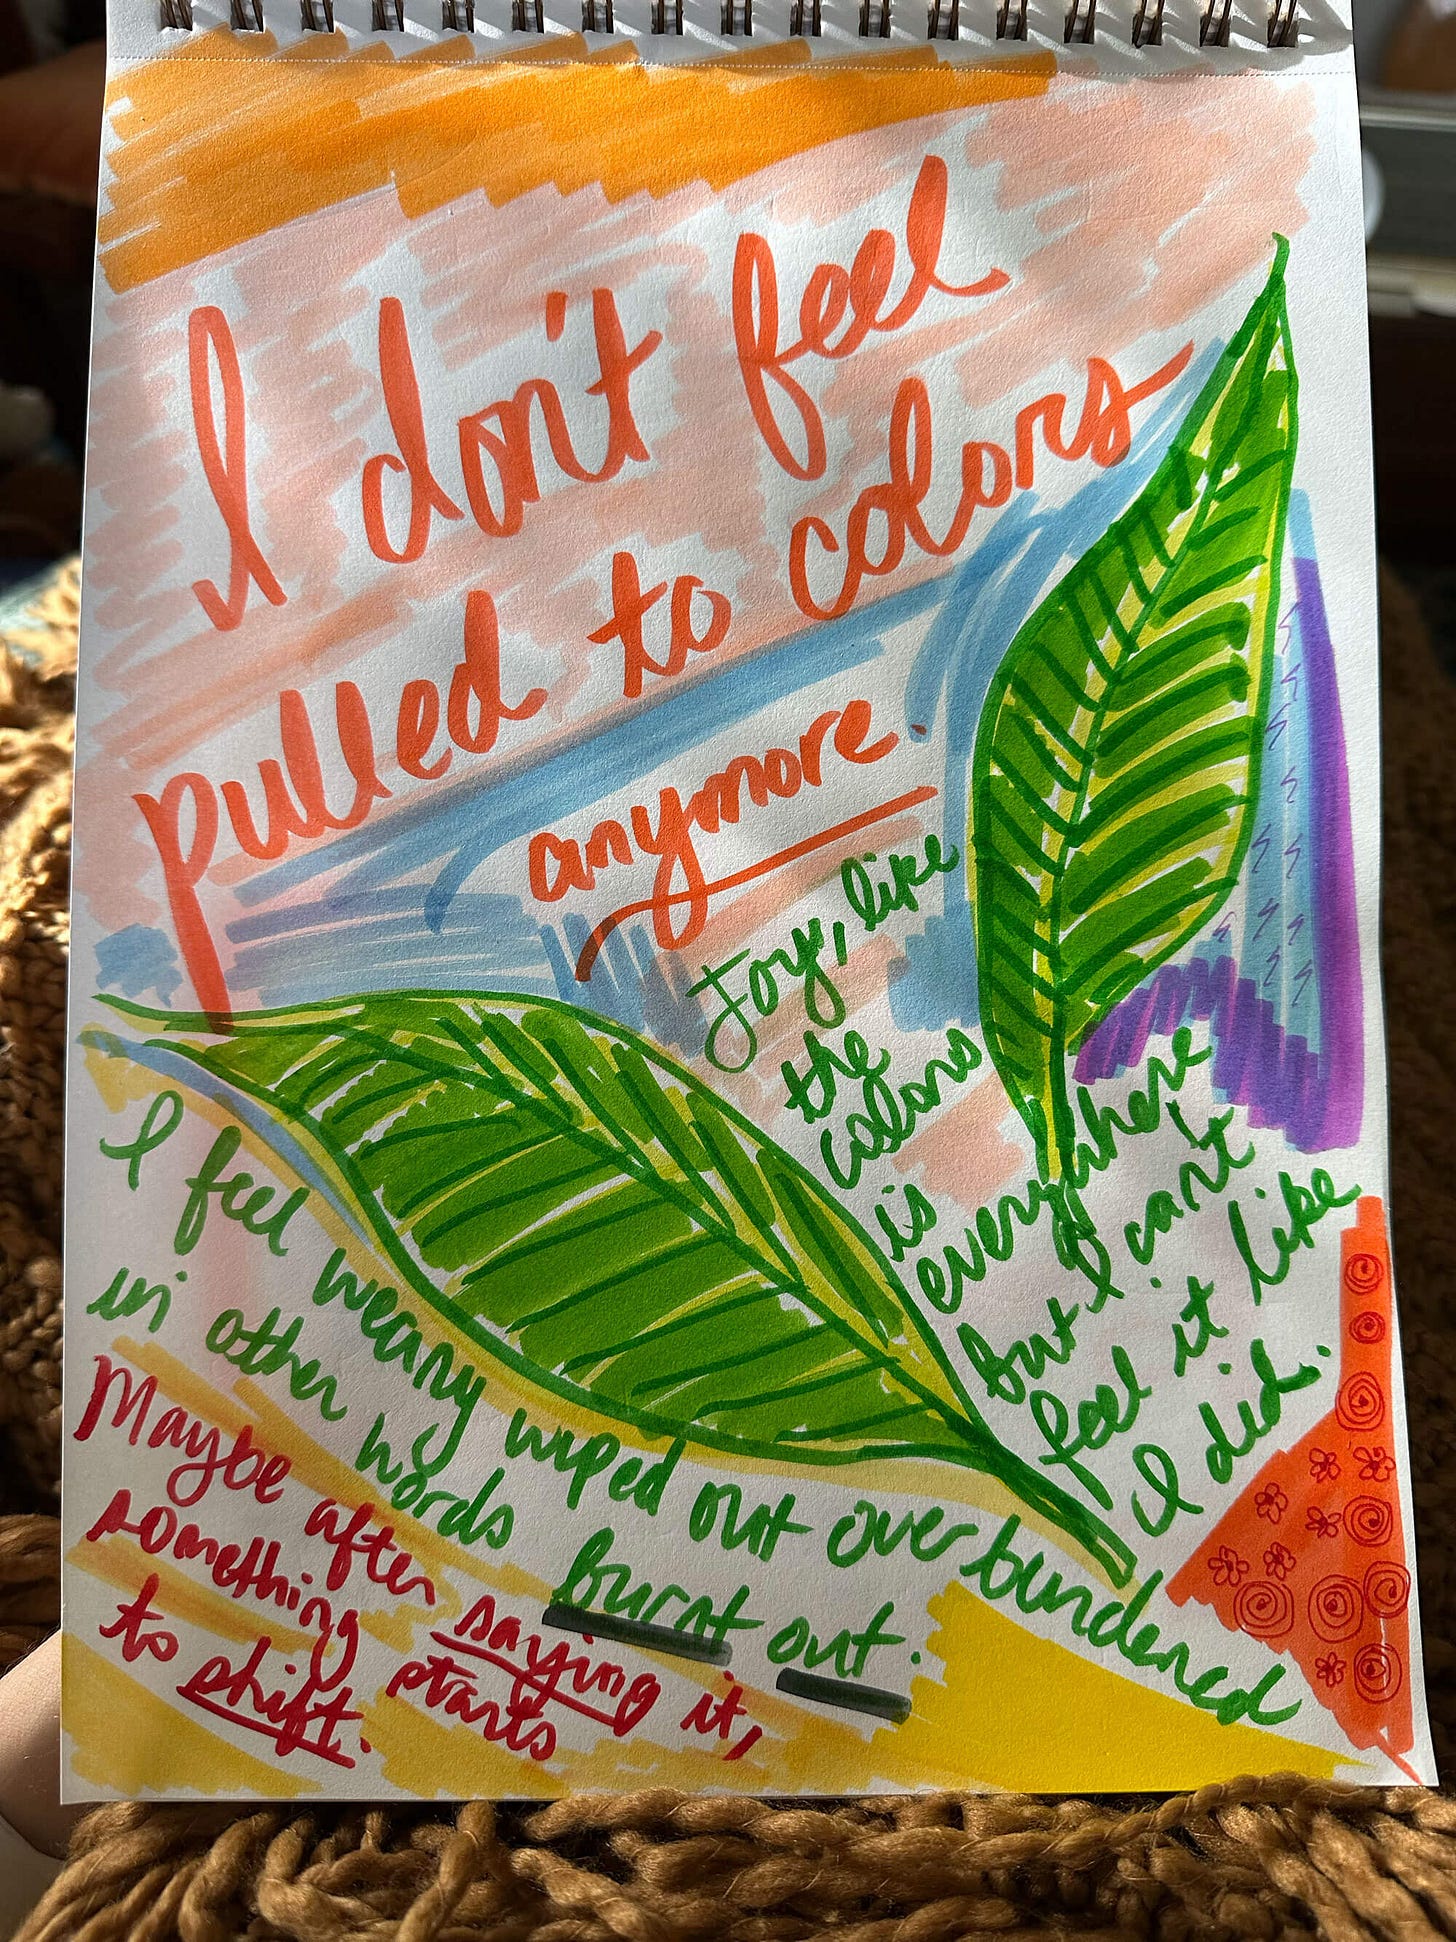 I don't feel
pulled to colors
anymore.
Joy, like
the
colors
is
everywhere
but I can't
feel it like
I did.
I feel weary wiped out over burdened
in other words burnt out.
Maybe after saying it,
something starts
to shift.